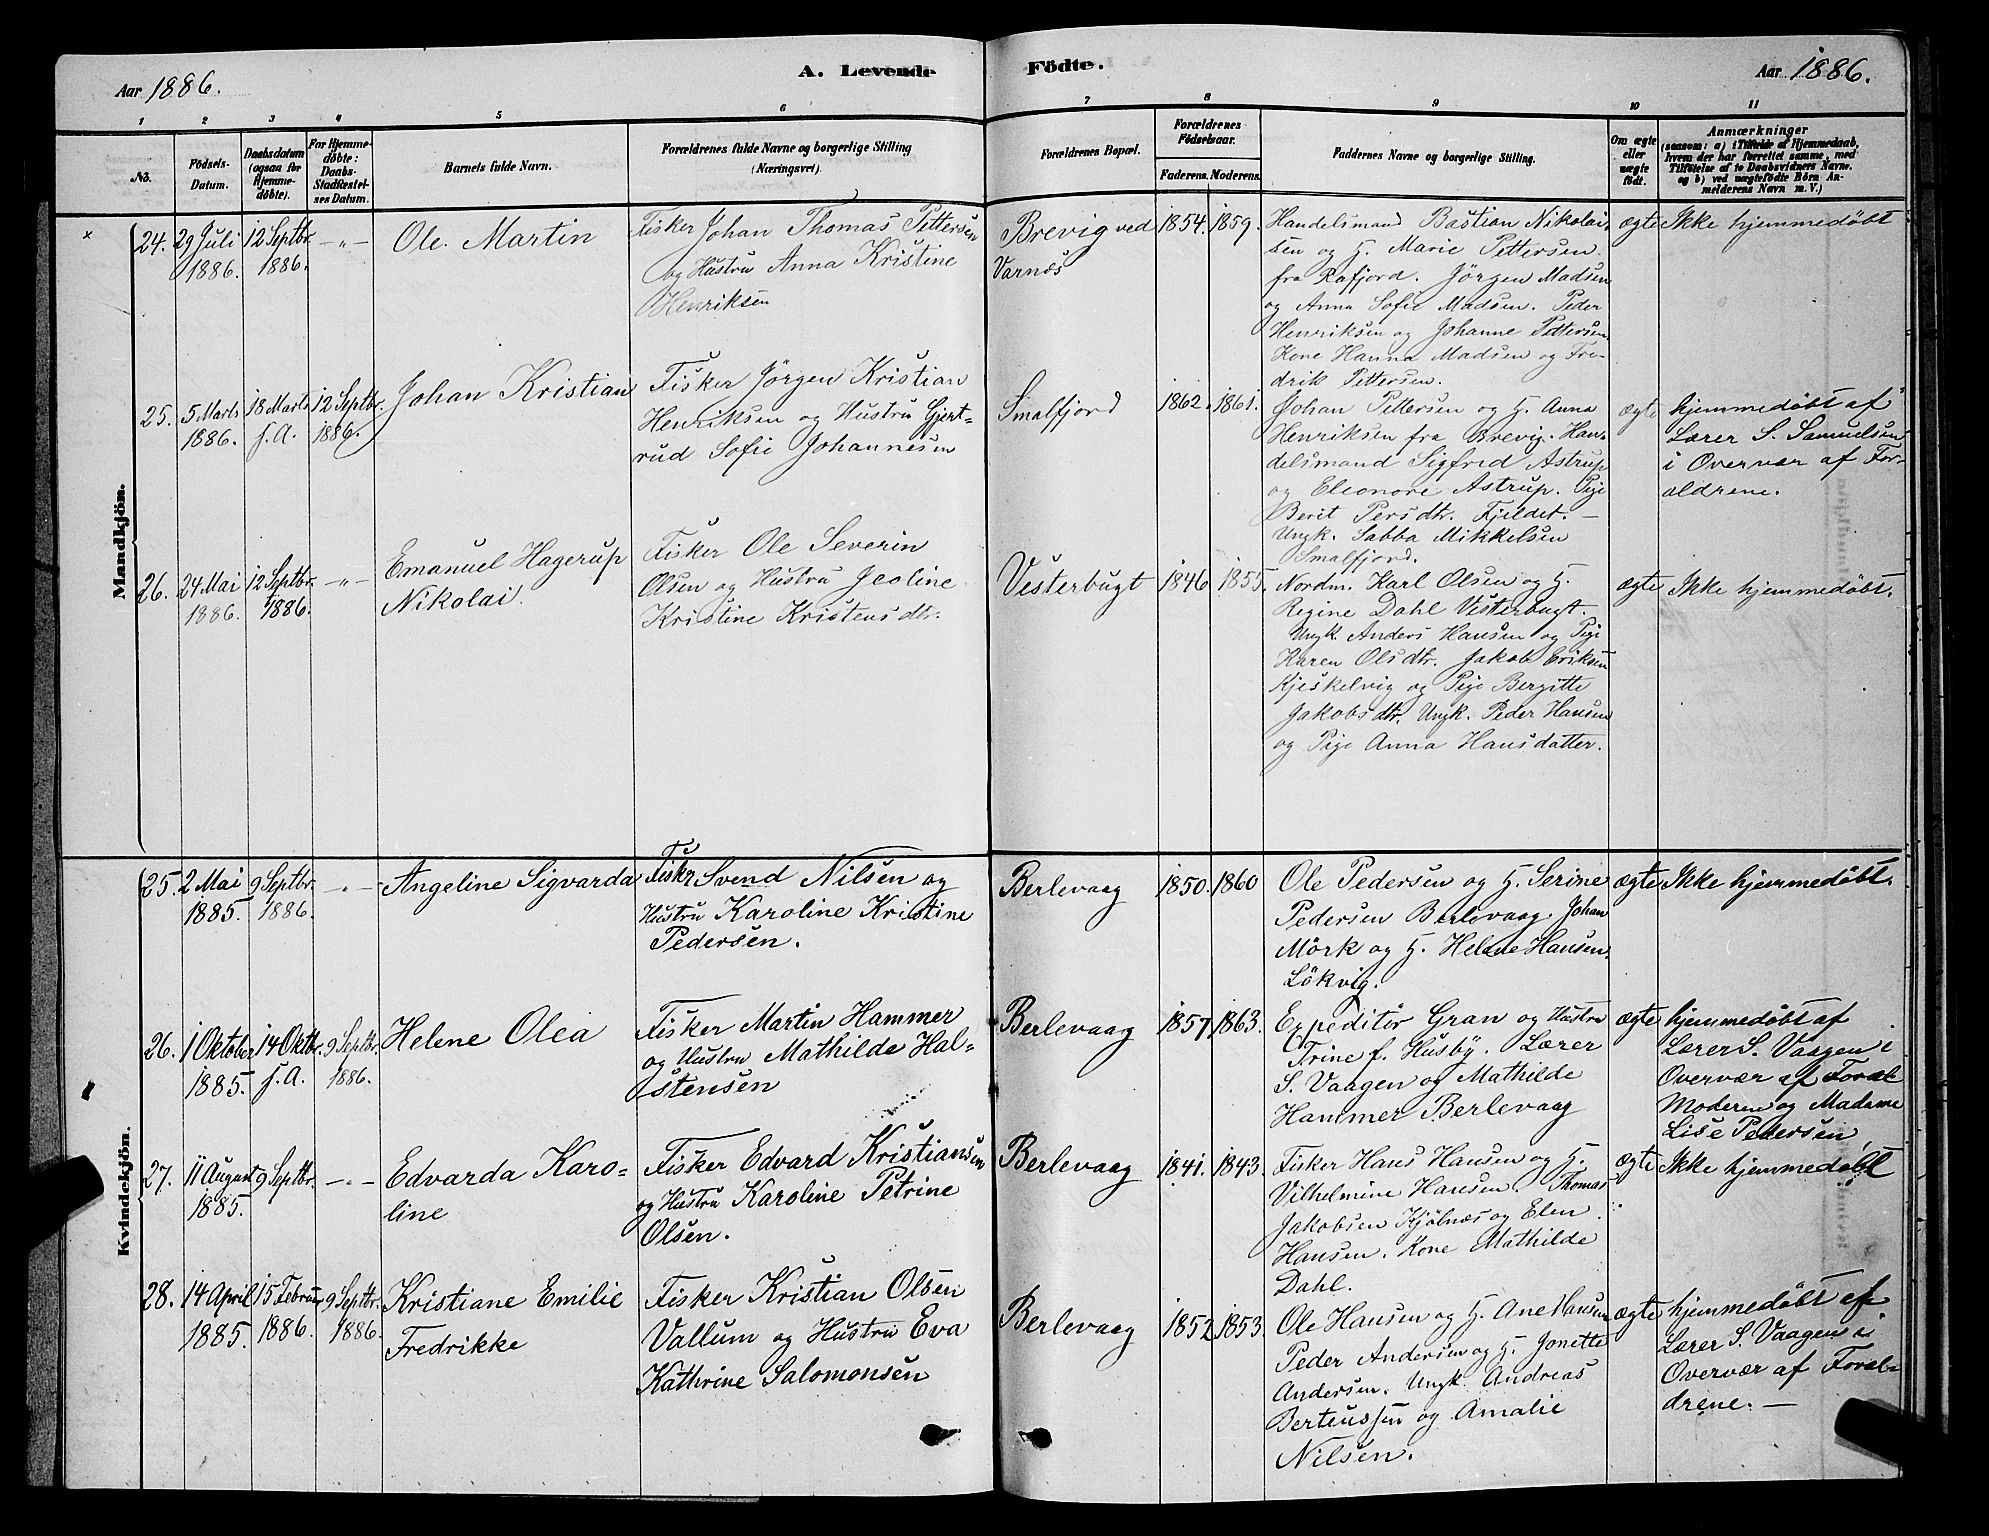 Aar 1886.
A. Levende
Födte.
Aar 1886.
1 2 3 4 5 6 7 8 9 10 11
No.
Födsels-
Datum.
Daabsdatum
(ogsaa for
Hjemme-
döbte).
For Hjemme-
döbte:
Daabs-
Stadfæstel-
ses Datum.
Barnets fulde Navn.
Forældrenes fulde Navne og borgerlige Stilling
(Næringsvei).
Forældrenes Bopæl.
Forældrenes
Födselsaar.
Faderens. Moderens.
Faddernes Navne og borgerlige Stilling.
Om ægte
eller
uægte
født.
Anmærkninger
(saasom: a) i Tilfælde af Hjemmedaab,
hvem der har forrettet samme, med
Tilföielse af to Daabsvidners Navne.
og b) ved uægtefödte Börn An-
melderens Navn m. V.)
Mandkjön.
x
24.
29 Juli
1886.
12 Septbr.
1886.
-"-
Ole Martin
Fisker Johan Thomas Pettersen
og Hustru Anna Kristine
Henriksen
Brevig ved
Varnæs
1854.
1859.
Handelsmand Bastian Nikolai-
sen og H. Marie Pettersen
fra Rafjord. Jörgen Madsen
og Anna Sofie Madsen. Peder
Henriksen og Johanne Pettersen.
Kone Hanna Madsen og Fre-
drik Pettersen.
ægte
Ikke hjemmedøbt
25.
5 Marts
1886.
18 Marts
s. A.
12 Septbr.
1886.
Johan Kristian
Fisker Jörgen Kristian
Henriksen og Hustru Gjert-
rud Sofie Johannesen
Smalfjord
1862.
1861.
Johan Pettersen og H. Anna
Henriksen fra Brevig. Han-
delsmand Sigfred Astrup
og Eleonore Astrup. Pige
Berit Persdtr. Fjeldet. —
Ungk. Sabba Mikkelsen
Smalfjord.
ægte
hjemmedøbt af
Lærer S. Samuelsen
i Overvær af For-
ældrene.
26.
24 Mai
1886.
12 Septbr.
1886.
-"-
Emanuel Hagerup
Nikolai.
Fisker Ole Severin
Olsen og Hustru Jeoline
Kristine Kristensdtr.
Vesterbugt
1846
1855.
Nordm. Karl Olsen og H.
Regine Dahl Vesterbugt.
Ungk. Anders Hansen og Pige
Karen Olsdtr. Jakob Eriksen
Kjeskelvig og Pige Bergitte
Jakobsdtr. Ungk. Peder Hansen
og Pige Anna Hansdatter.
ægte
Ikke hjemmedøbt.
Kvindekjön.
25.
2 Mai
1885.
9 Septbr.
1886.
-"-
Angeline Sigvarda
Fiskr Svend Nilsen og
Hustru Karoline Kristine
Pedersen.
Berlevaag
1850.
1860
Ole Pedersen og H. Serine
Pedersen Berlevaag. Johan
Mörk og H. Helene Hansen.
Lökvig.
ægte
Ikke hjemmedøbt.
26.
1 Oktober
1885.
14 Oktbr.
s. A.
9 Septbr.
1886.
Helene Olea
Fisker Martin Hammer
og Hustru Mathilde Hal-
stensen
Berlevaag
1857
1863.
Expeditör Gran og Hustru
Trine f. Husby. Lærer
S. Vaagen og Mathilde
Hammer Berlevaag
ægte
hjemmedøbt af
Lærer S. Vaagen i
Overvær af Foræl
Moderen og Madame
Lise Pedersen
27.
11 August
1885.
9 Septbr.
-"-
Edvarda Karo-
line
Fisker Edvard Kristiansen
og Hustru Karoline Petrine
Olsen.
Berlevaag
1841.
1843.
Fisker Hans Hansen og H.
Vilhelmine Hansen. Thomas
Jakobsen Kjölnæs og Elen
Hansen. Kone Mathilde
Dahl.
ægte
Ikke hjemmedøbt
28.
14 April
1885.
15 Februar
1886.
9 Septbr.
1886.
Kristiane Emilie
Fredrikke
Fisker Kristian Olsen
Vallum og Hustru Eva
Kathrine Salomonsen
Berlevaag
1852
1853.
Ole Hansen og H. Ane Hansen
Peder Andersen og H. Jonette
Andersen. Ungk. Andreas
Berteussen og Amalie
Nilsen.
ægte
hjemmedøbt af
Lærer S. Vaagen i
Overvær af Foræl-
drene. —